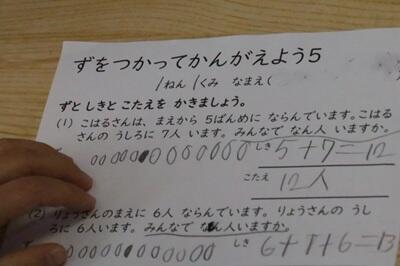 ずをつかってかんがえよう5
1ねん 1くみ なまえ(
ずと しきと こたえを かきましょう。
(1) こはるさんは、まえから 5ばんめに ならんでいます。こはる
さんの うしろに 7人 います。みんなで なん人 いますか。
しき 5+7=12
こたえ 12人
(2) りょうさんのまえに 6人 ならんでいます。りょうさんの うし
ろに 6人います。みんなで なん人いますか。
しき 6+1+6=13